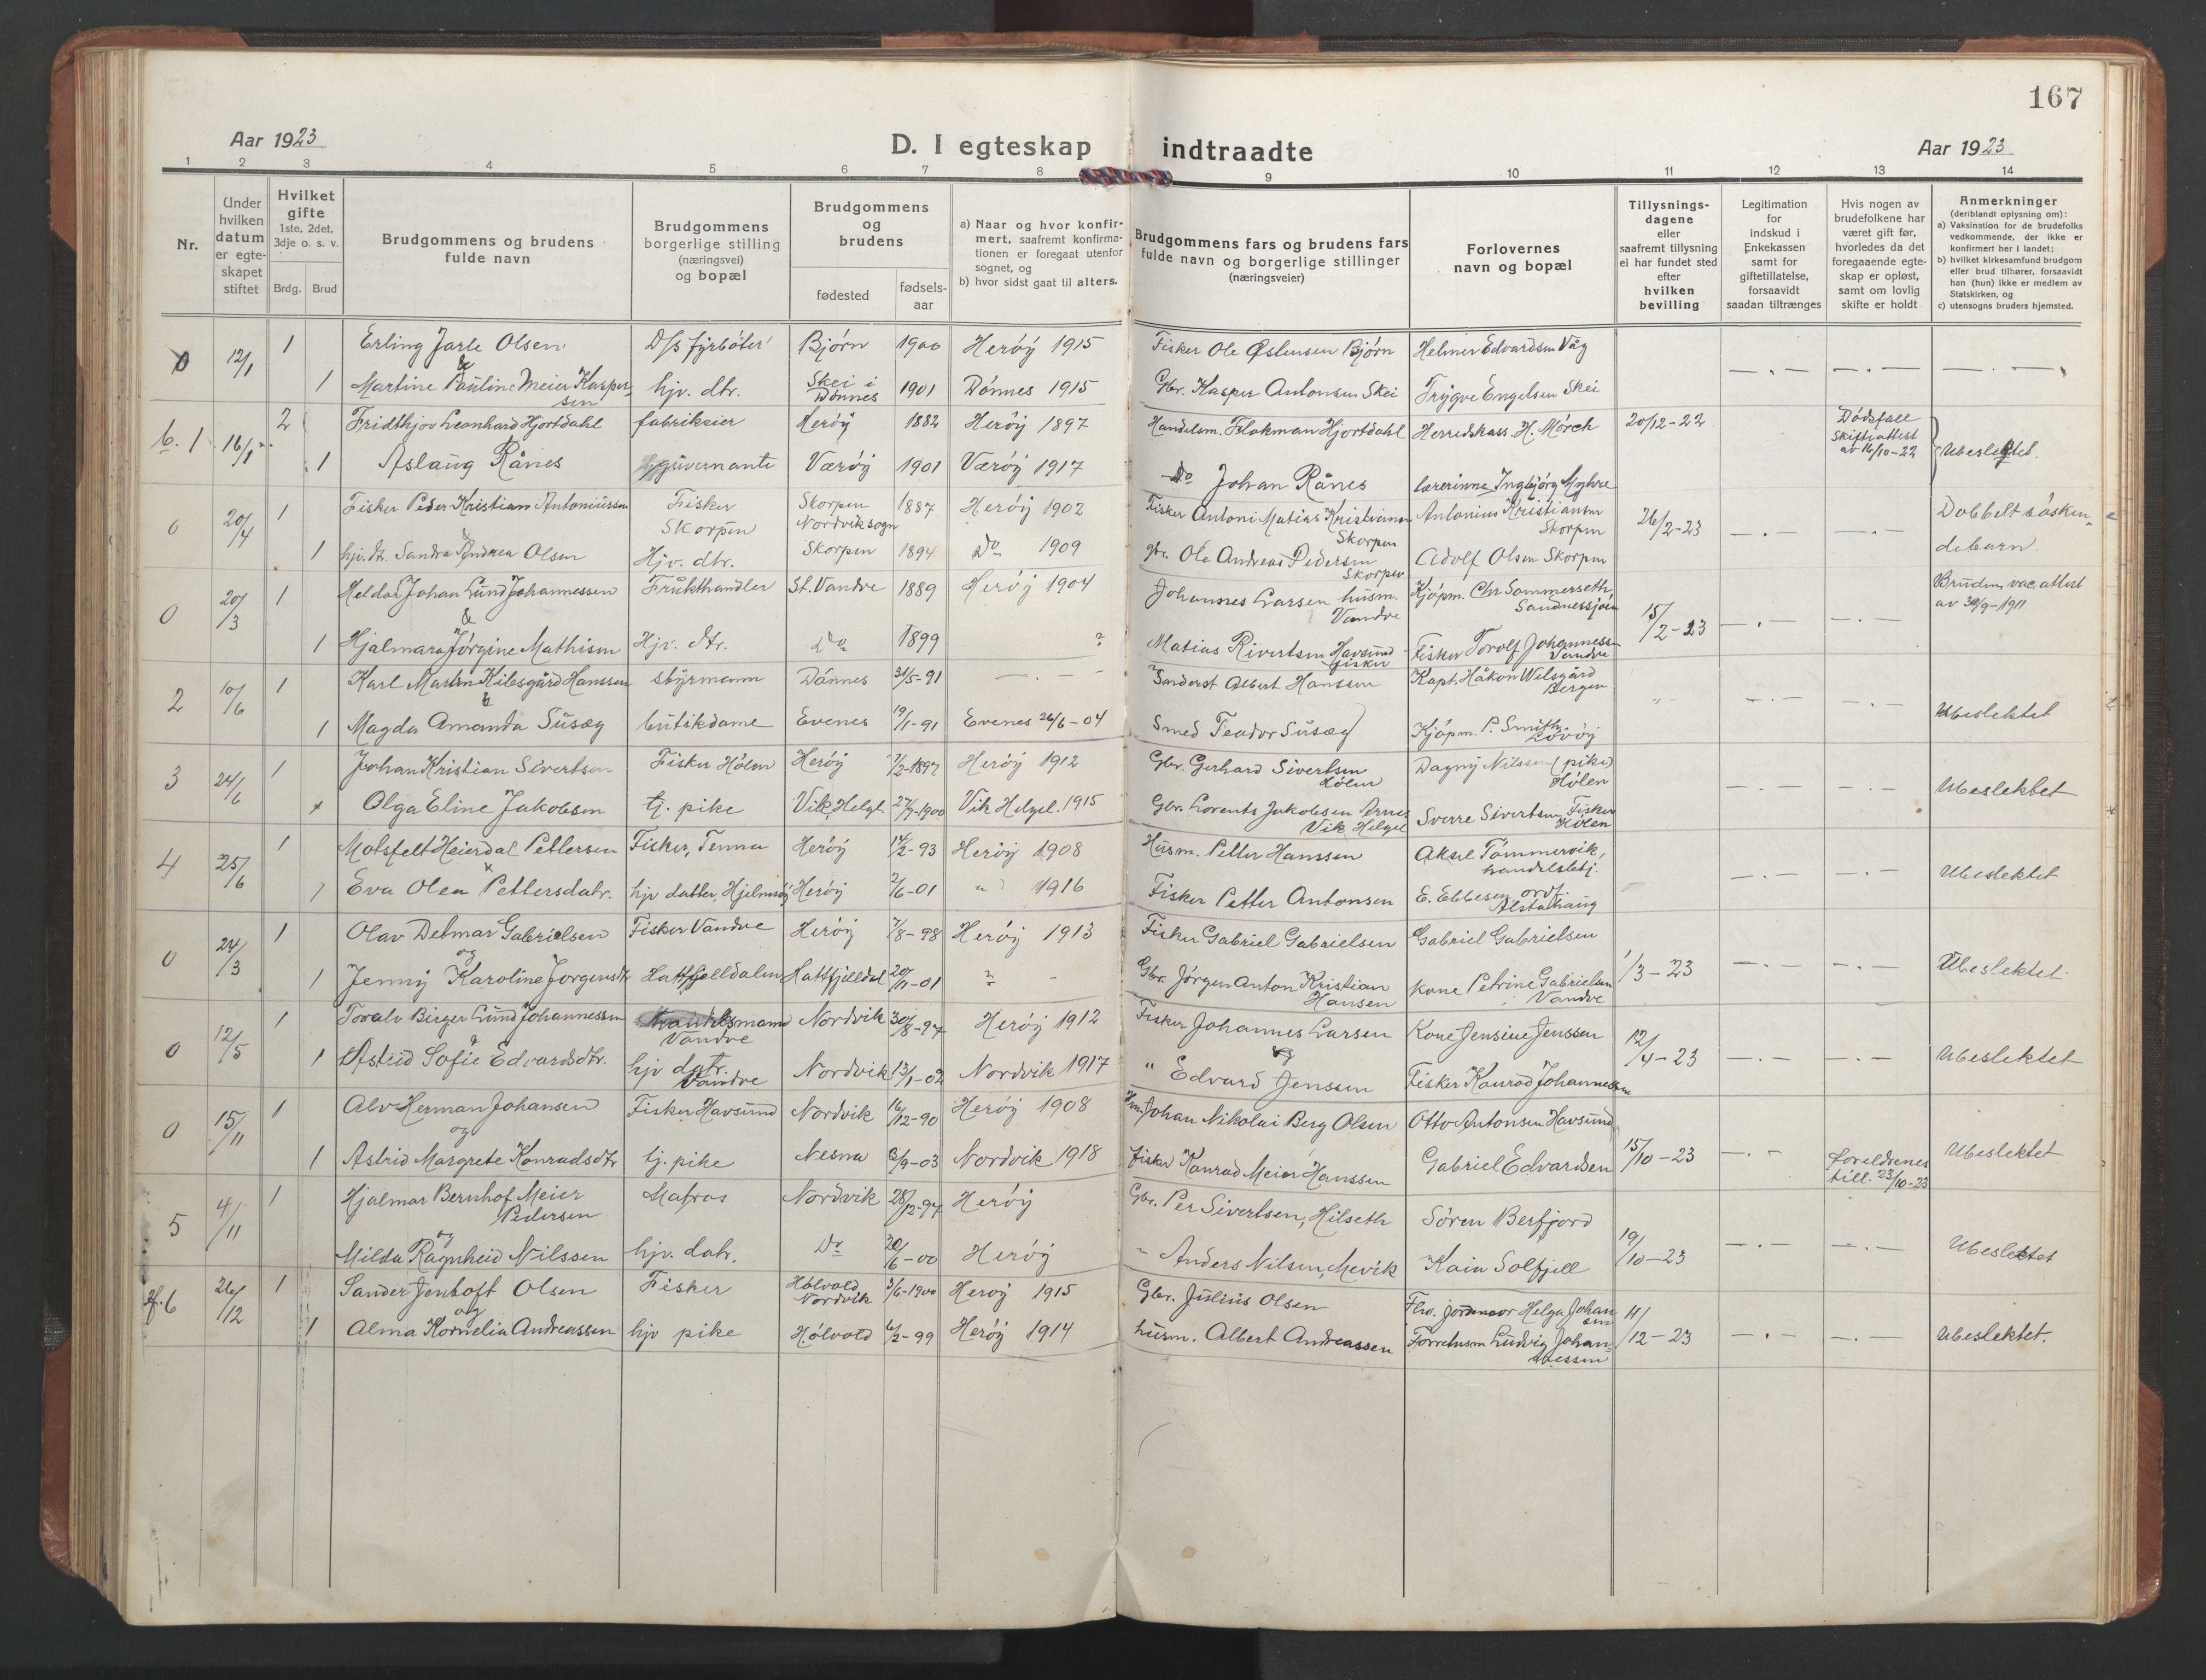 167
Aar 1923
D. I egteskap indtraadte
Aar 1923
1 2 3 4 5 6 7 8 9 10 11 12 13 14
Nr.
Under hvilken datum er egteskapet stiftet
Hvilket gifte 1ste, 2det, 3dje o. s. v.
Brdg. Brud
Brudgommens og brudens fulde navn
Brudgommens borgerlige stilling (næringsvei) og bopæl
Brudgommens og brudens
fødested
fødsels-aar
a) Naar og hvor konfirmert, saafremt konfirmationen er foregaat utenfor sognet, og
b) hvor sidst gaat til alters.
Brudgommens fars og brudens fars fulde navn og borgerlige stillinger (næringsveier)
Forlovernes navn og bopæl
Tillysningsdagene eller saafremt tillysning ei har fundet sted efter hvilken bevilling
Legitimation for indskud i Enkekassen samt for giftetillatelse, forsaavidt saadan tiltrænges
Hvis nogen av brudefolkene har været gift før, hvorledes da det foregaaende egteskap er opløst, samt om lovlig skifte er holdt
Anmerkninger (deriblandt oplysning om):
a) Vaksination for de brudefolks vedkommende, der ikke er konfirmert her i landet;
b) hvilket kirkesamfund brudgom eller brud tilhører, forsaavidt han (hun) ikke er medlem av Statskirken, og
c) utensogns bruders hjemsted.
0 12/1 1 Erling Jarle Olsen D/s fyrbøter Bjørn 1900 Herøy 1915 Fisker Ole Østensen Bjørn Helmer Edvardsen Våg
&
1 Martine Pauline Meier Kaspersen hjv. dtr. Skei i Dønnes 1901 Dønnes 1915 Gbr. Kasper Antonsen Skei Trygve Engelsen Skei
1 16/1 2 Fridthjov Leonhard Hjortdahl fabrikeier Herøy 1882 Herøy 1897 Handelsm. Flakman Hjortdahl Herredskass. H. Mørch 20/12-22 Dødsfall Skifteattest av 16/10-22
1 Aslaug Rånes guvernante Værøy 1901 Værøy 1917 Do Johan Rånes lærerinne Ingbjørg Myhre Ubeslektet.
0 20/4 1 Fisker Peder Kristian Antoniussen Fisker Skorpen Skorpen Nordviksogn 1887 Herøy 1902 Fisker Antoni Matias Kristiansen Skorpen Antonius Kristiansen Skorpen 26/2-23 Dobbelt søskendebarn
&
1 hjv. dt. Sandra Andrea Olsen Hjv. dtr. Skorpen 1894 Do 1909 gbr. Ole Andreas Pedersen Skorpen Adolf Olsen Skorpen
0 20/3 1 Heldor Johan Lund Johannessen Frukthandler St. Vandve 1889 Herøy 1904 Johannes Larsen husm. Vandve Kjøpm. Chr Sommerseth Sandnessjøen 15/2-23 Bruden vac. attest av 30/9-1911
&
1 Hjalmara Jørgine Mathisen Hjv. dtr. Do 1899 ? Matias Rivertsen Havsund fisker Fisker Torolf Johannessen Vandve
2 10/6 1 Karl Marten Kilesgård Hanssen styrmann Dønnes 31/5-91 Sonderst Albert Hanssen Kapt. Håkon Wilsgård Bergen
&
1 Magda Amanda Susæg butikdame Evenes 19/1-91 Evenes 26/6-04 Smed Teodor Susæg Kjøpm. P. Smith Løvøy Ubeslektet
3 24/6 1 Johan Kristian Sivertsen Fisker Hølen Herøy 7/2-1897 Herøy 1912 Gbr. Gerhard Sivertsen Hølen Dagny Nilssen (pike) Hølen
Olga Eline Jakobsen tj. pike Vik, Helgl. 27/7-1900 Vik Helgel. 1915 Gbr. Lorents Jakobsen Årnes Vik Helgel Sverre Sivertsen Fisker Hølen Ubeslektet
4 25/6 1 Motsfelt Heierdal Pettersen Fisker, Tenna Herøy 14/2-93 Herøy 1908 Husm. Petter Hanssen Aksel Tømmervik, handelsbetj.
1 Eva Olea Pettersdatr. hjv datter, Hjelmsøy Herøy 2/6-01 " 1916 Fisker Petter Antonsen E. Ebbesen ordf. Alstahaug Ubeslektet
0 24/3 1 Olav Detmar Gabrielsen Fisker Vandve Herøy 7/8-98 Herøy 1913 Fisker Gabriel Gabrielsen Gabriel Gabrielsen
og
1 Jenny Karoline Jørgensdtr Hattfjelldalen Hattfjelldal 20/11-01 ? Gbr. Jørgen Anton Kristian Hansen kone Petrine Gabrielsen Vandve 1/3-23 Ubeslektet
0 12/5 1 Toralv Birger Lund Johannessen Vandve Nordvik 30/8-97 Herøy 1912 Fisker Johannes Larsen Kone Jensine Jenssen 12/4-23
&
1 Astrid Sofie Edvardsdtr. hjv datr. Vandve Nordvik 13/1-02 Nordvik 1917 " Edvard Jenssen Fisker Konrad Johannessen Ubeslektet
0 15/11 1 Alv Herman Johansen Fisker Havsund Nordvik 16/12-90 Herøy 1908 Hm. Johan Nikolai Berg Olsen Otto Antonsen Havsund
og
1 Astrid Margrete Konradsdtr tj. pike Nesna 3/9-03 Nordvik 1918 fisker Konrad Meier Hanssen Gabriel Edvardsen 15/10-23 foreldrenes till. 23/10-23 Ubeslektet
5 4/11 1 Hjalmar Bernhof Meier Pedersen Matros Nordvik 28/12-97 Herøy Gbr. Per Sivertsen, Hilseth Søren Berfjord
og
Milda Ragnheid Nilssen hjv. datr. Do 20/6-00 Herøy " Anders Nilsen, Mevik Kain Solfjell 19/10-23 Ubeslektet
6 26/12 1 Sander Jentoft Olsen Fisker Hølvold Nordvik 3/6-1900 Herøy 1915 Gbr. Julius Olsen Frv. jordmor Helga Johansen 11/12-23
og
1 Alma Kornelia Andreassen hjv pike Hølvold 6/2-99 Herøy 1914 husm. Albert Andreassen Forretnsm Ludvig Johannessen Ubeslektet.